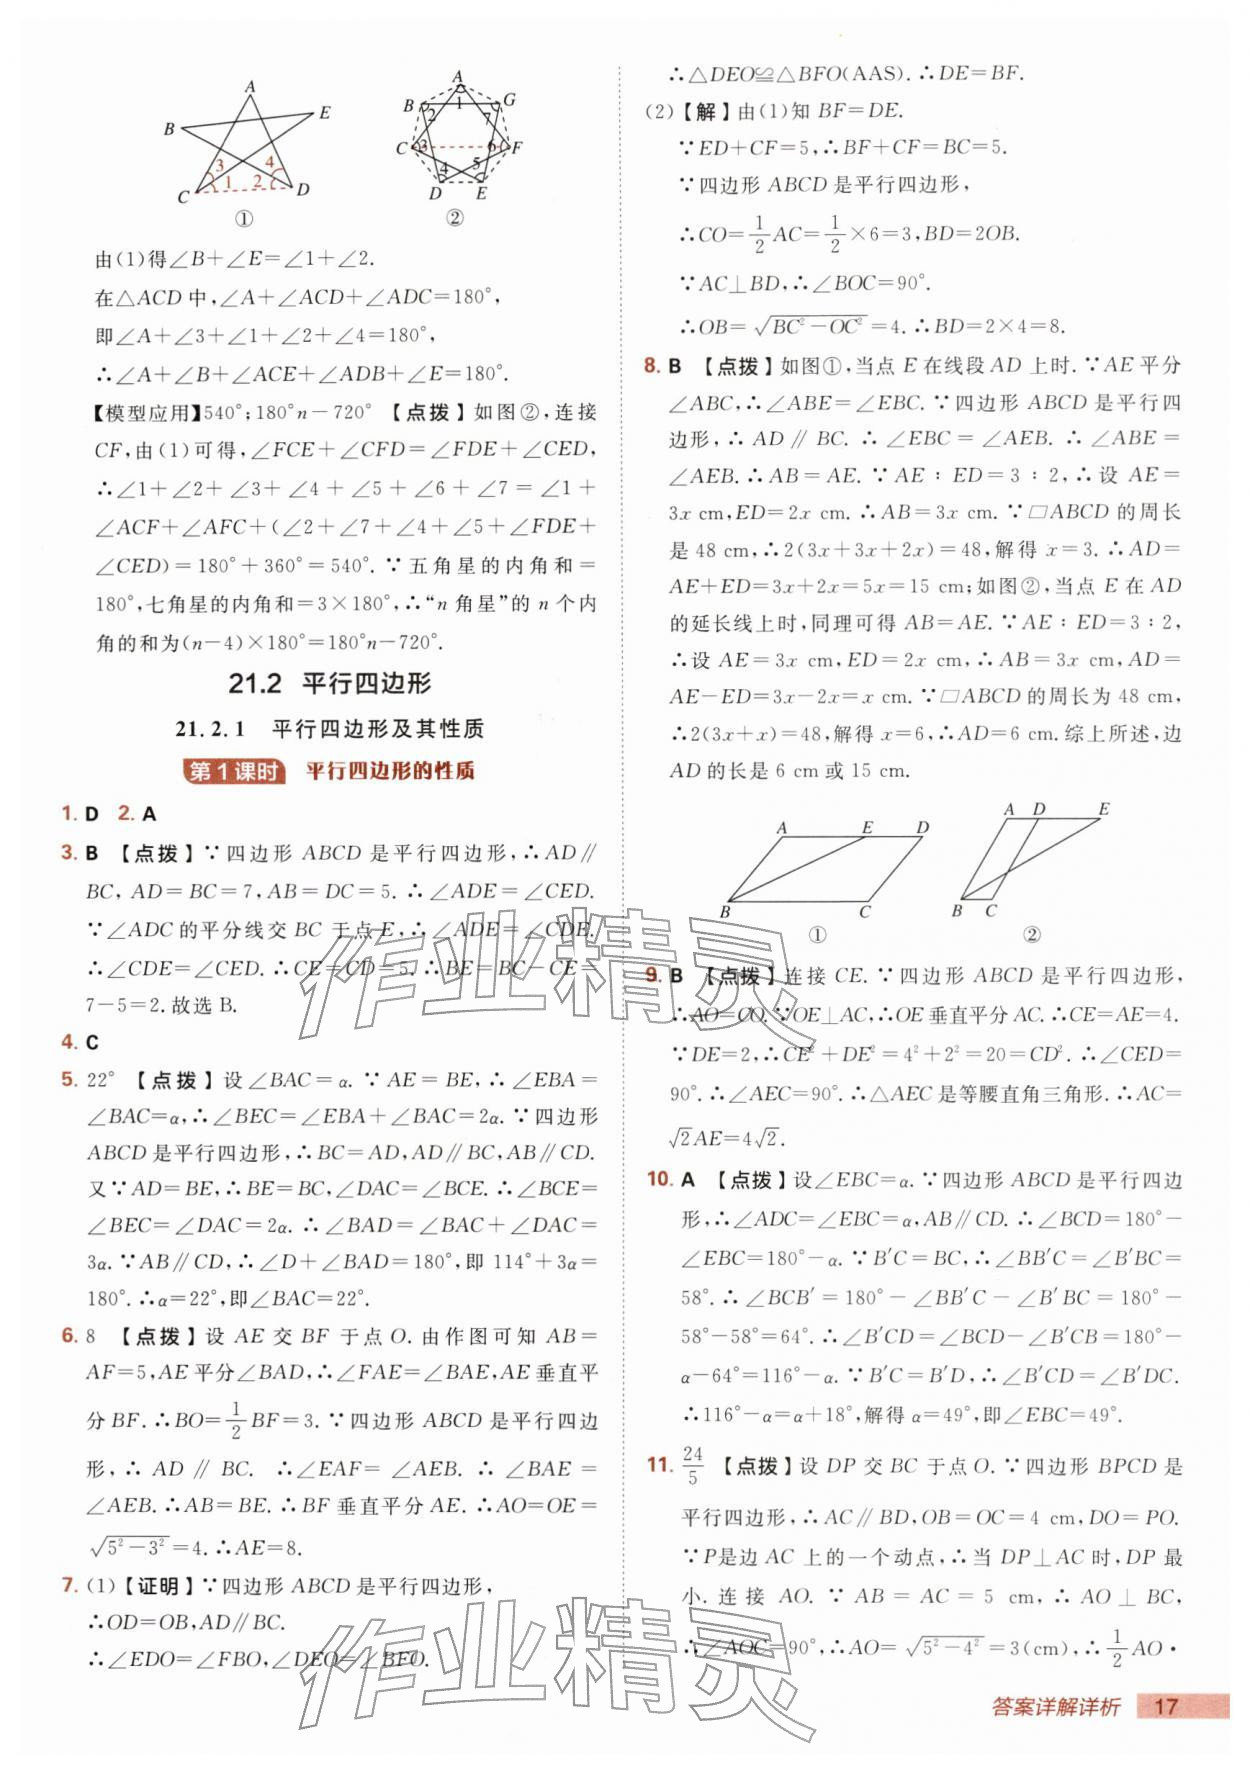 A
B
E
3
4
1
2
C
D
①
A
B
G
1
2
7
C
3
6
F
4
5
D
E
②
由(1)得∠B+∠E=∠1+∠2.
在△ACD中,∠A+∠ACD+∠ADC=180°,
即∠A+∠3+∠1+∠2+∠4=180°,
∴∠A+∠B+∠ACE+∠ADB+∠E=180°.
【模型应用】540°;180°n-720° 【点拨】如图②,连接
CF,由(1)可得,∠FCE+∠CFD=∠FDE+∠CED,
∴∠1+∠2+∠3+∠4+∠5+∠6+∠7=∠1+
∠ACF+∠AFC+(∠2+∠7+∠4+∠5+∠FDE+
∠CED)=180°+360°=540°.∵五角星的内角和=
180°,七角星的内角和=3×180°,∴“n角星”的n个内
角的和为(n-4)×180°=180°n-720°.
21.2 平行四边形
21.2.1 平行四边形及其性质
第1课时 平行四边形的性质
1. D 2. A
3. B 【点拨】∵四边形ABCD是平行四边形,∴AD∥
BC,AD=BC=7,AB=DC=5.∴∠ADE=∠CED.
∵∠ADC的平分线交BC于点E,∴∠ADE=∠CDE.
∴∠CDE=∠CED.∴CE=CD=5.∴BE=BC-CE=
7-5=2.故选B.
4. C
5. 22° 【点拨】设∠BAC=α.∵AE=BE,∴∠EBA=
∠BAC=α,∴∠BEC=∠EBA+∠BAC=2α.∵四边形
ABCD是平行四边形,∴BC=AD,AD∥BC,AB∥CD.
又∵AD=BE,∴BE=BC,∠DAC=∠BCE.∴∠BCE=
∠BEC=∠DAC=2α.∴∠BAD=∠BAC+∠DAC=
3α.∵AB∥CD,∴∠D+∠BAD=180°,即114°+3α=
180°.∴α=22°,即∠BAC=22°.
6. 8 【点拨】设AE交BF于点O.由作图可知AB=
AF=5,AE平分∠BAD,∴∠FAE=∠BAE,AE垂直平
分BF.∴BO=1/2BF=3.∵四边形ABCD是平行四边
形,∴AD∥BC.∴∠EAF=∠AEB.∴∠BAE=
∠AEB.∴AB=BE.∴BF垂直平分AE.∴AO=OE=
√(5²-3²)=4.∴AE=8.
7. (1)【证明】∵四边形ABCD是平行四边形,
∴OD=OB,AD∥BC.
∴∠EDO=∠FBO,∠DEO=∠BFO.
∴△DEO≌△BFO(AAS).∴DE=BF.
(2)【解】由(1)知BF=DE.
∵ED+CF=5,∴BF+CF=BC=5.
∵四边形ABCD是平行四边形,
∴CO=1/2AC=1/2×6=3,BD=2OB.
∵AC⊥BD,∴∠BOC=90°.
∴OB=√(BC²-OC²)=4.∴BD=2×4=8.
8. B 【点拨】如图①,当点E在线段AD上时.∵AE平分
∠ABC,∴∠ABE=∠EBC.∵四边形ABCD是平行四
边形,∴AD∥BC.∴∠EBC=∠AEB.∴∠ABE=
∠AEB.∴AB=AE.∵AE∶ED=3∶2,∴设AE=
3x cm,ED=2x cm.∴AB=3x cm.∵□ABCD的周长
是48 cm,∴2(3x+3x+2x)=48,解得x=3.∴AD=
AE+ED=3x+2x=5x=15 cm;如图②,当点E在AD
的延长线上时,同理可得AB=AE.∵AE∶ED=3∶2,
∴设AE=3x cm,ED=2x cm.∴AB=3x cm,AD=
AE-ED=3x-2x=x cm.∵□ABCD的周长为48 cm,
∴2(3x+x)=48,解得x=6,∴AD=6 cm.综上所述,边
AD的长是6 cm或15 cm.
A
E
D
B
C
①
A
D
E
B
C
②
9. B 【点拨】连接CE.∵四边形ABCD是平行四边形,
∴AO=CO.∵OE⊥AC,∴OE垂直平分AC.∴CE=AE=4.
∵DE=2,∴CE²+DE²=4²+2²=20=CD².∴∠CED=
90°.∴∠AEC=90°.∴△AEC是等腰直角三角形.∴AC=
√2AE=4√2.
10. A 【点拨】设∠EBC=α.∵四边形ABCD是平行四边
形,∴∠ADC=∠EBC=α,AB∥CD.∴∠BCD=180°-
∠EBC=180°-α.∵B′C=BC,∴∠BB′C=∠B′BC=
58°.∴∠BCB′=180°-∠BB′C-∠B′BC=180°-
58°-58°=64°.∴∠B′CD=∠BCD-∠B′CB=180°-
α-64°=116°-α.∵B′C=B′D,∴∠B′CD=∠B′DC.
∴116°-α=α+18°,解得α=49°,即∠EBC=49°.
11. 24/5 【点拨】设DP交BC于点O.∵四边形BPCD是
平行四边形,∴AC∥BD,OB=OC=4 cm,DO=PO.
∵P是边AC上的一个动点,∴当DP⊥AC时,DP最
小.连接AO.∵AB=AC=5 cm,∴AO⊥BC,
∴∠AOC=90°,∴AO=√(5²-4²)=3(cm),∴1/2AO·
答案详解详析 17
作业精灵
作业精灵